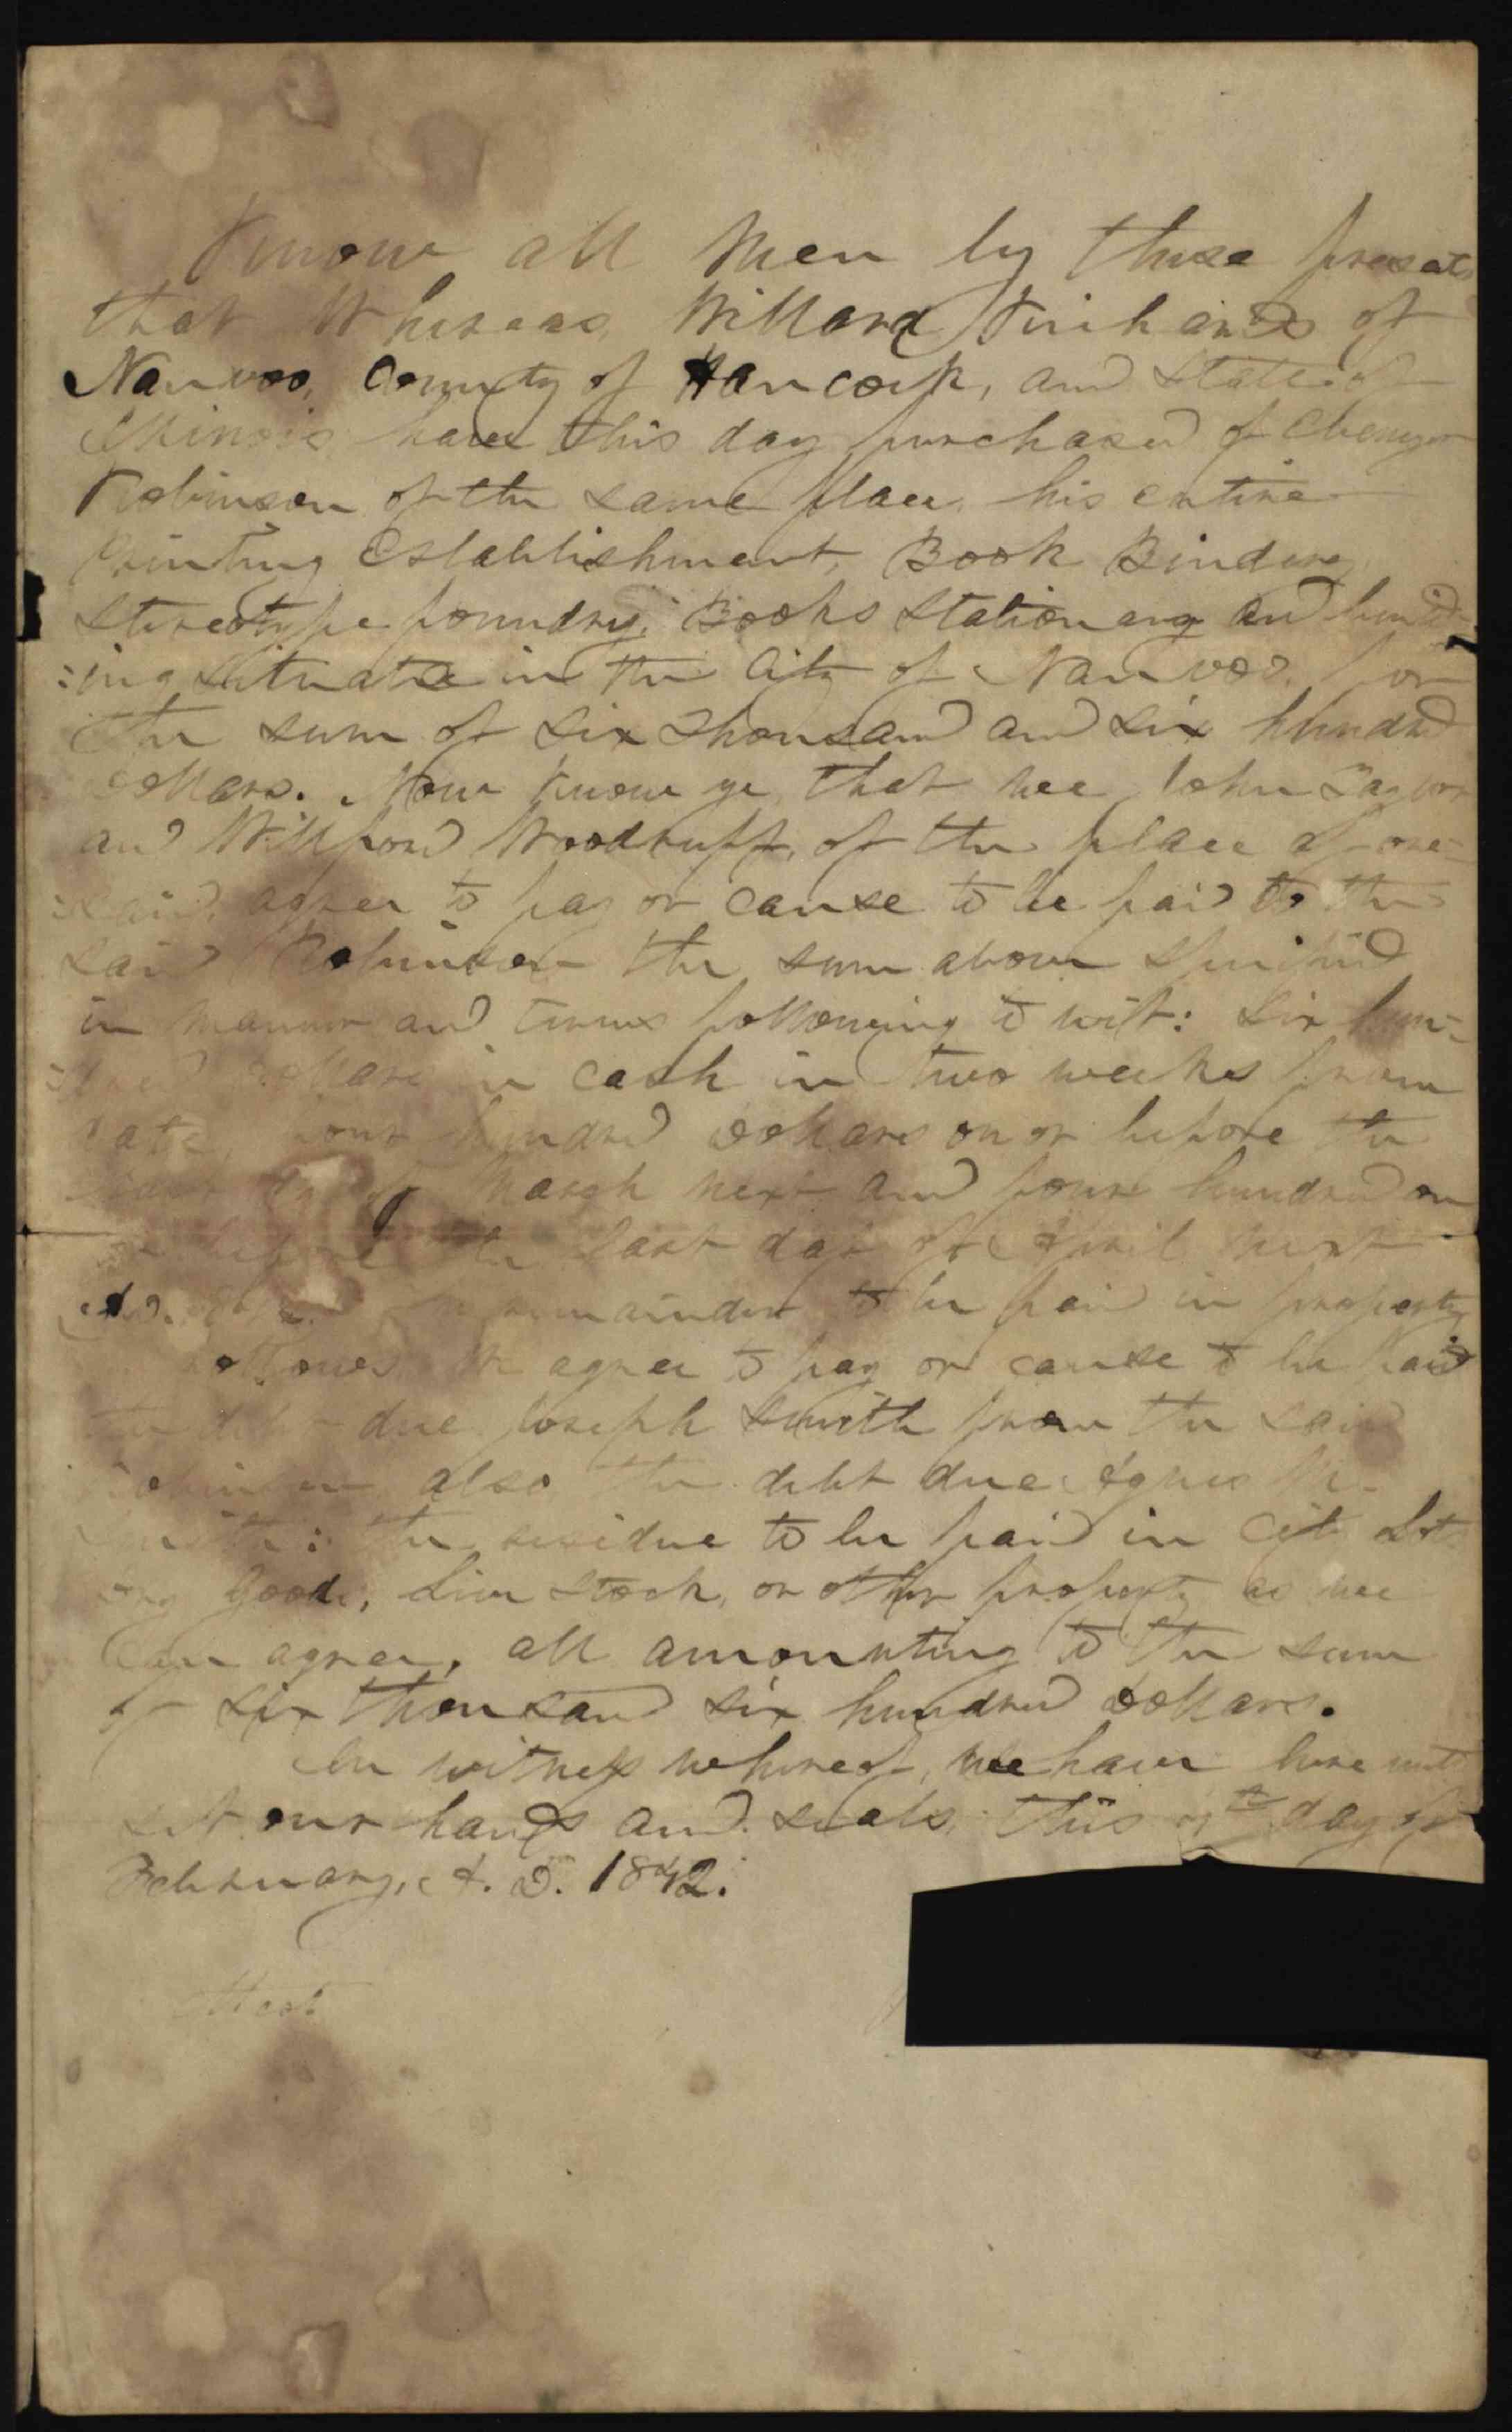 Know all Men by these presents
that Whereas, Willard Richards of
Nauvoo, County of Hancock, and State of
Illinois have this day purchased of Ebenezer
Robinson of the same place, his entire
Printing Establishment, Book Bindery,
Stereotype foundry, Books Stationary and build-
:ing situate in the City of Nauvoo. for
the sum of Six Thousand and six hundred
dollars. Now know ye, that wee John Taylor
and Willford Woodruff, of the place afore-
:said, agree to pay or cause to be paid to the
said Robinson the sum above specified
in manner and times following to wit: Six hun-
:dred dollars in cash in two weeks from
date, four hundred dollars on or before the
day of March next and four hundred on
before the last day of April next
remainder to be paid in property
as follows. We agree to pay or cause to be paid
the debt due Joseph Smith from the said
Robinson also the debt due Agnes M.
Smith: the residue to be paid in City Lots
dry Goods, live Stock, or other property as wee
can agree, all amounting to the sum
of six thousand six hundred dollars.
In witness whereof, wee have here unto
set our hands and seals, this day of
February, A. D. 1842.
Attest